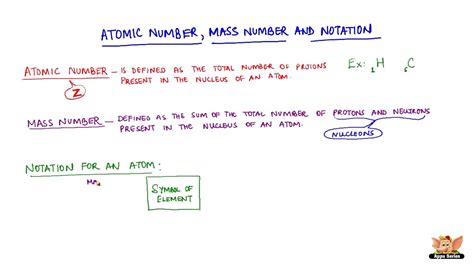 ATOMIC NUMBER, MASS NUMBER AND NOTATION
ATOMIC NUMBER – IS DEFINED AS THE TOTAL NUMBER OF PROTONS
PRESENT IN THE NUCLEUS OF AN ATOM.
Z
Ex: ₁H ₆C
MASS NUMBER – DEFINED AS THE SUM OF THE TOTAL NUMBER OF PROTONS AND NEUTRONS
PRESENT IN THE NUCLEUS OF AN ATOM.
NUCLEONS
NOTATION FOR AN ATOM:
SYMBOL OF
ELEMENT
Appu Series